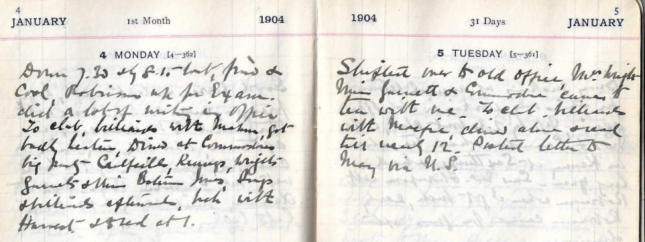 4
JANUARY 1st Month 1904
4 MONDAY [4-362]
Down 7.30 by 8.15 boat, fine &
Cool, Robinson up for Exam.
did a lot of writing in office
To club, billiards with
badly beaten, Dined at Commodores
big party Caulfeild, Wrights
Garnetts & Miss
& billiards afterwards, back with
Harvest & bed at 1.
1904 31 Days 5
JANUARY
5 TUESDAY [5-361]
Shifted over to old office, Mrs Wright
Miss Garnett & Commodore came to
tea with me. To club billiards
with dined alone & read
till nearly 12. Posted letter to
May via U.S.